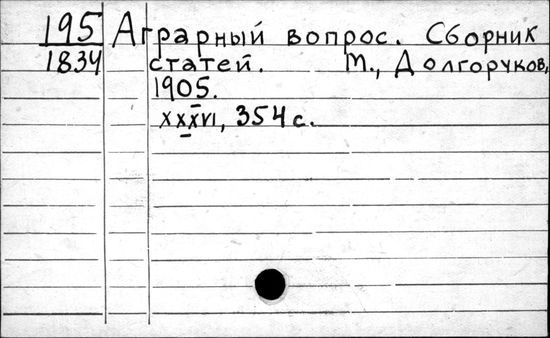 195 Аграрный вопрос. Сборник
1834 статей. М., Долгоруков,
1905.
XXXVI, 354 с.